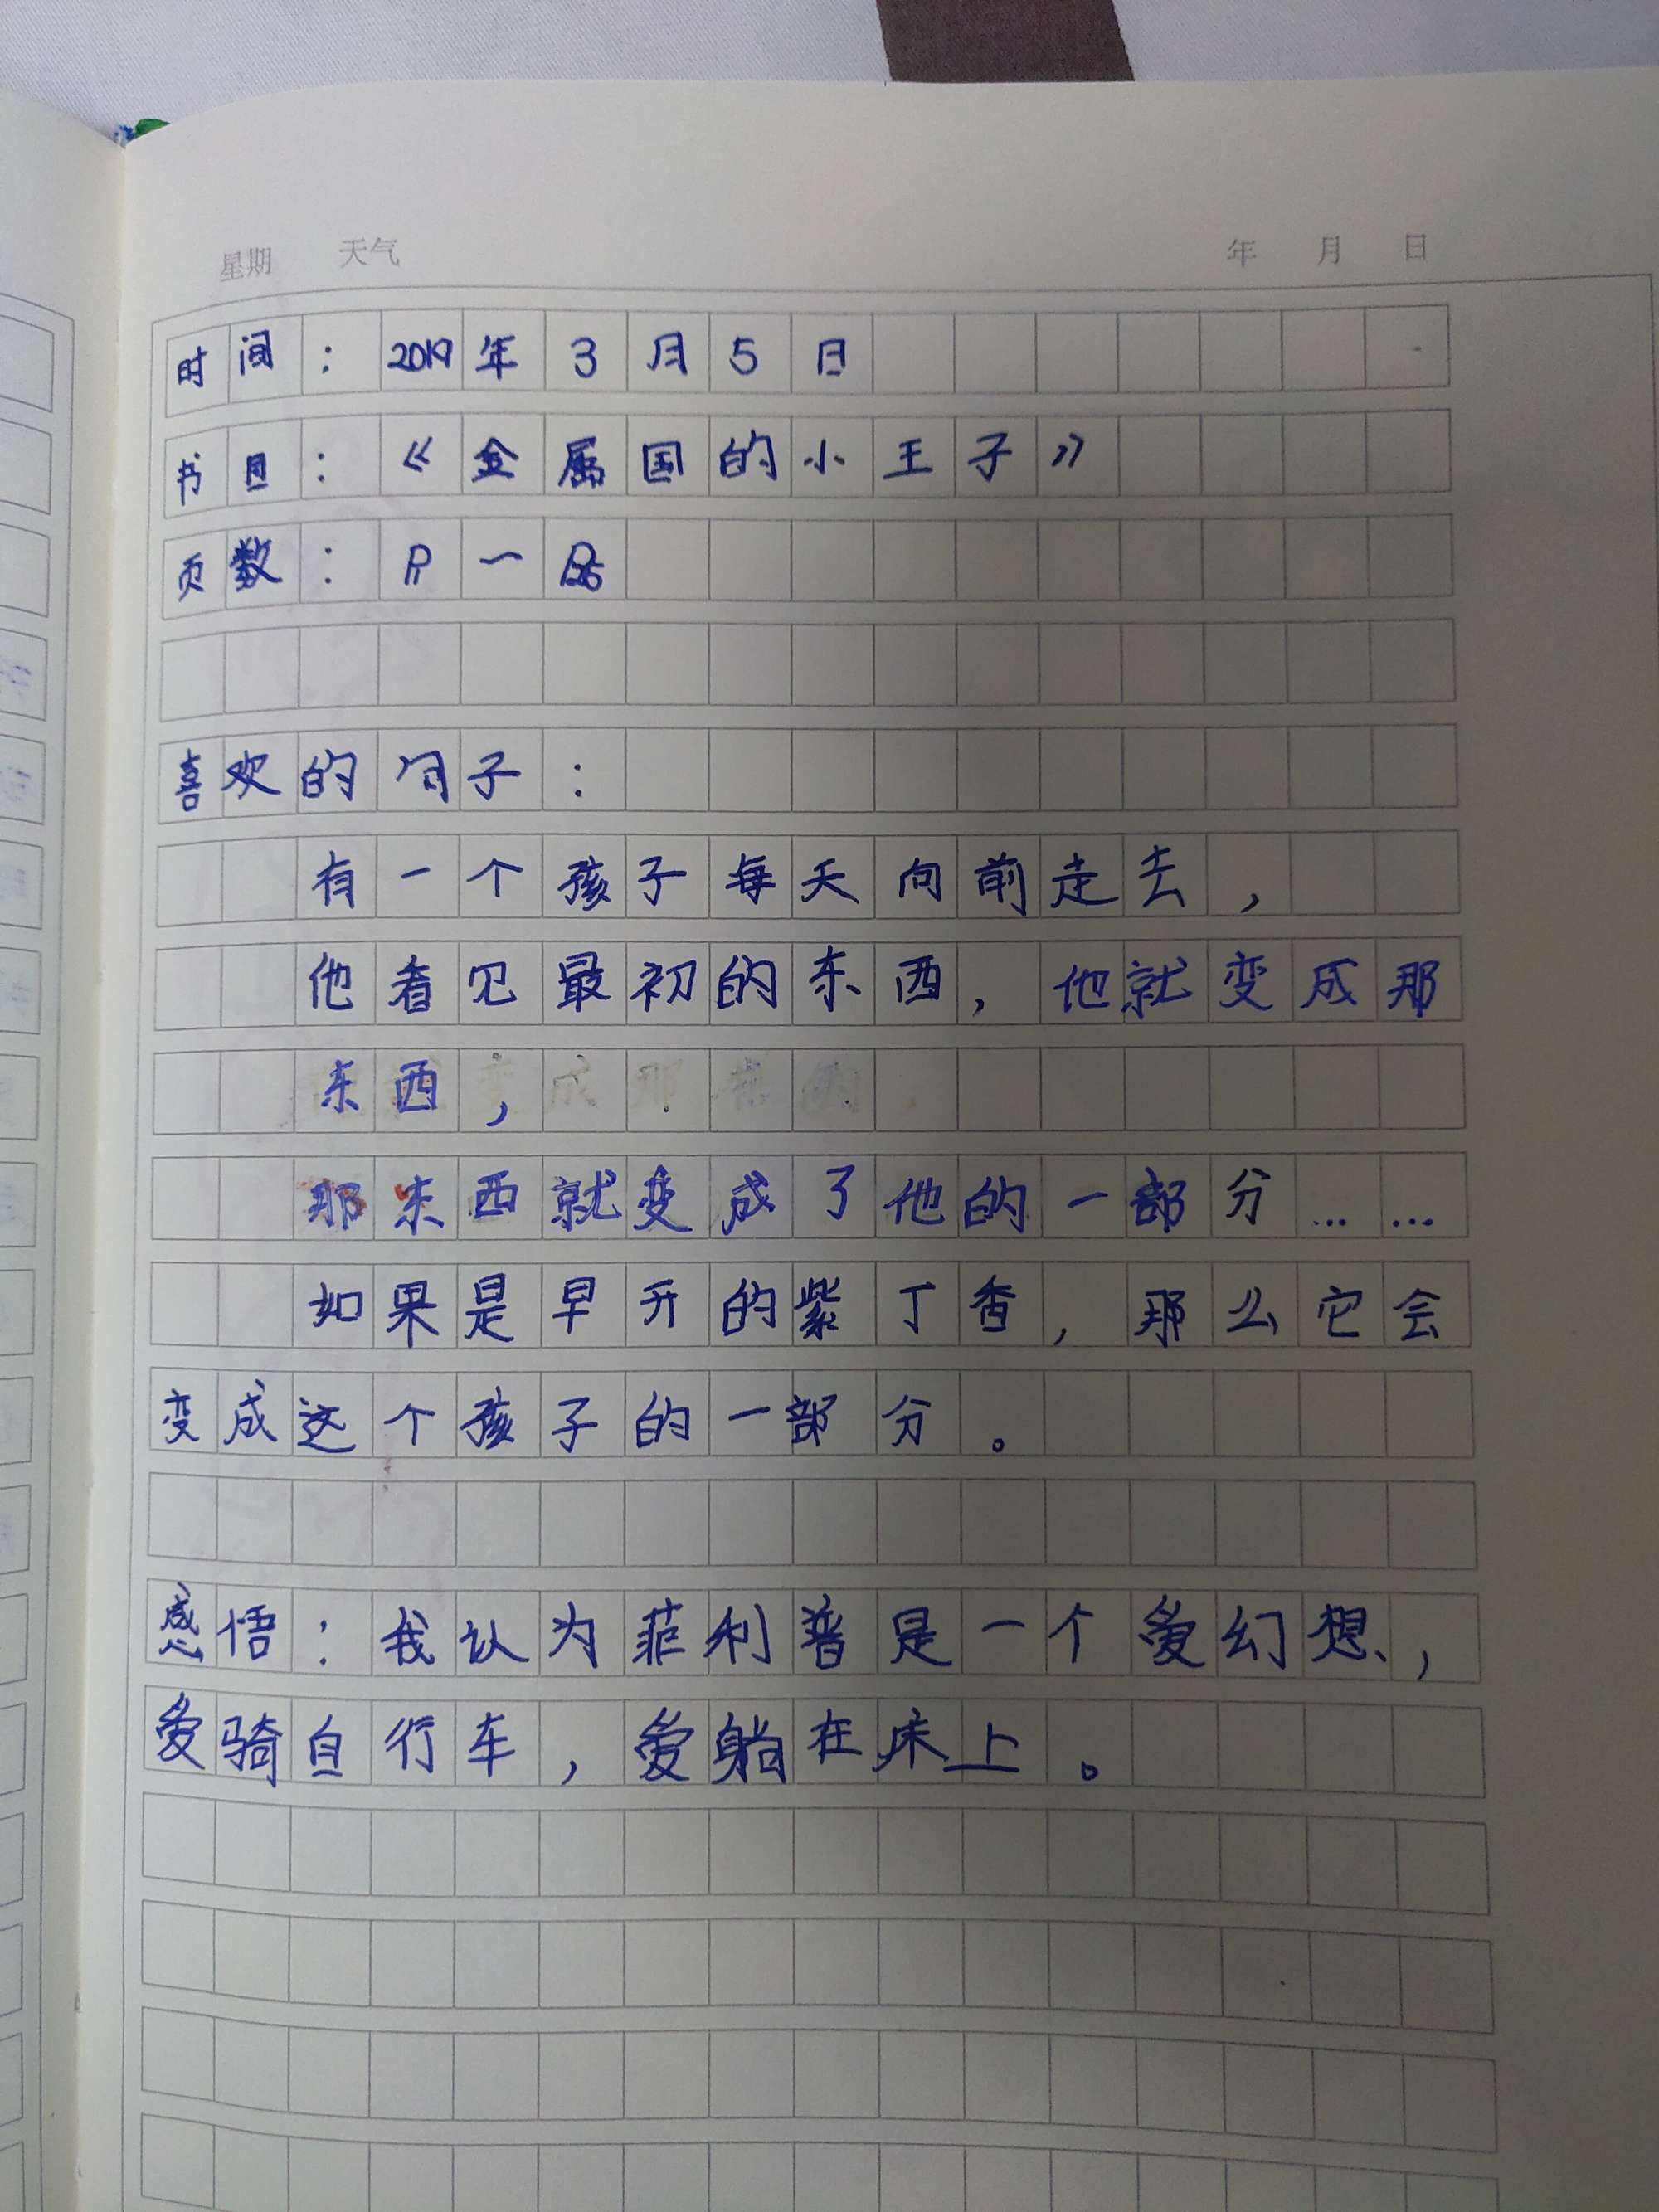 星期 天气 年 月 日
时间：2019年3月5日
书目：《金属国的小王子》
页数：P1一
喜欢的句子：
有一个孩子每天向前走去，
他看见最初的东西，他就变成那
东西，
那东西就变成了他的一部分……
如果是早开的紫丁香，那么它会
变成这个孩子的一部分。
感悟：我认为菲利普是一个爱幻想，
爱骑自行车，爱躺在床上。